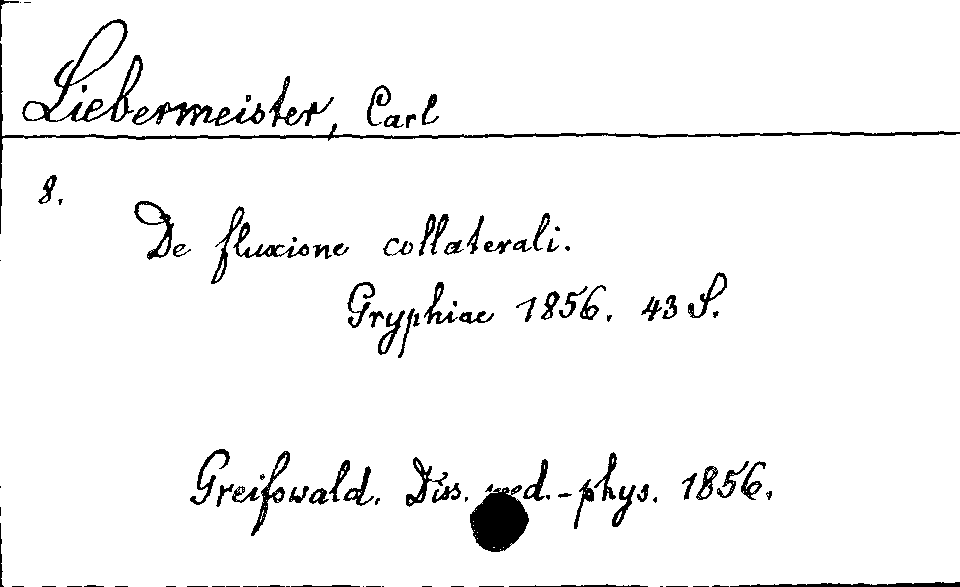 Liebermeister, Carl
8.
De fluxione collaterali.
Gryphiae 1856. 43 S.
Greifswald. Diss. med.-phys. 1856.